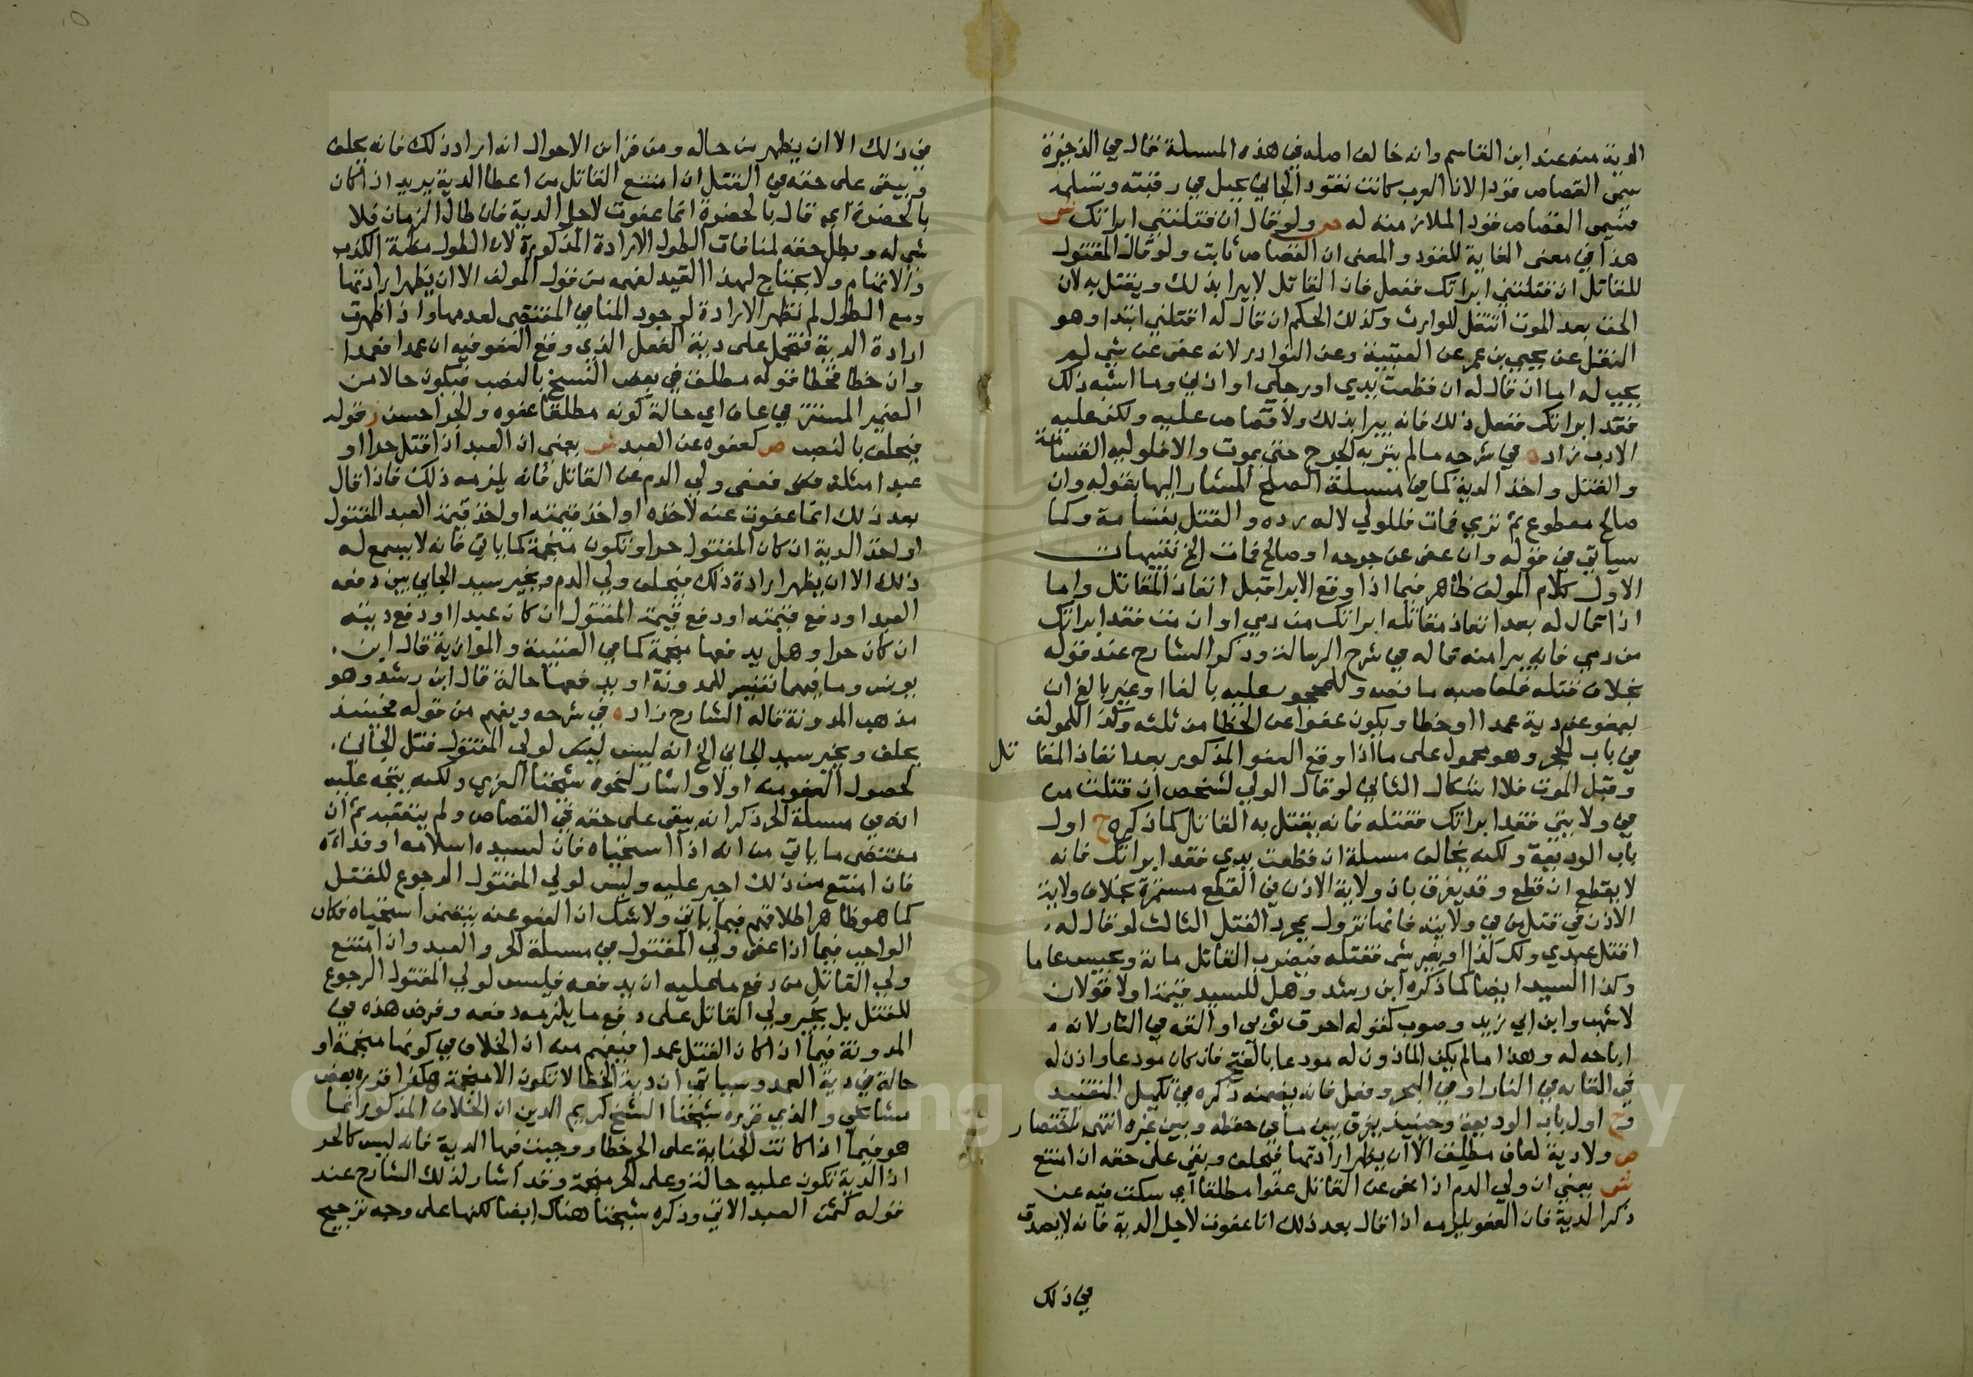 الدية منه عند ابن القاسم وانه خالف اصله في هذه المسلة فقال في الذخيرة
سمي القصاص قودا لان العرب كانت تقود الجاني بحبل في رقبته وتسلمه
فسمي القصاص قودا لملازمته له ص ولو قال ان قتلتني ابراتك ش
هذا في معنى الغاية للقود والمعنى ان القصاص ثابت ولو قال المقتول
للقاتل ان قتلتني ابراتك ففعل فان القاتل لا يبرا بذلك ويقتل به لان
الحق بعد الموت انتقل للوارث وكذلك الحكم ان قال له اقتلني ابتدا وهو
النقل عن يحيى بن عمر عن العتبية وعن النوادر لانه عفى عن شي لم
يجب له اما ان قال له ان قطعت يدي او رجلي او اذني وما اشبه ذلك
فقد ابراتك ففعل ذلك فانه يبرا بذلك ولا قصاص عليه ولكن عليه
الادب زاد ه في شرحه ما لم يتر به الجرح حتى يموت والا فلوليه القسامة
والقتل واخذ الدية كما في مسلة الصلح المشار اليها بقوله وان
صالح مقطوع ثم نزي فمات فللولي لا له رده والقتل بقسامة وكما
سياتي في قوله وان عفى عن جرحه او صالح فمات الخ تنبيهات
الاول كلام المولف ظاهر فيما اذا وقع الابرا قبل انفاذ المقاتل واما
اذا قال له بعد انفاذ مقاتله ابراتك من دمي او ان مت فقد ابراتك
من دمي فانه يبرا منه قاله في شرح الرسالة وذكر الشارح عند قوله
بخلاف قتله فلعاصبه ما نصه وللمحجور عليه بالغا او غير بالغ ان
يعفو عن دية عمدا او خطا ويكون عفوا عن الخطا من ثلثه وكذا للمولف
في باب الحجر وهو محمول على ما اذا وقع العفو المذكور بعد انفاذ المقاتل
وقبل الموت فلا اشكال الثاني لو قال الولي لشخص ان قتلت من
في ولايتي فقد ابراتك فقتله فانه يقتل به القاتل كما ذكره ح اول
باب الوديعة ولكنه يخالف مسلة ان قطعت يدي فقد ابراتك فانه
لا يقطع ان قطع وقد يفرق بان ولاية الاذن في القطع مستمرة بخلاف ولاية
الاذن في قتل من في ولايته فانها تزول بمجرد القتل الثالث لو قال له
اقتل عبدي ولك كذا او بغير شي فقتله فيضرب القاتل ماية ويحبس عاما
وكذا السيد ايضا كما ذكره ابن رشد وهل للسيد قيمته اولا قولان
لاشهب وابن ابي زيد وصوب كقوله احرق ثوبي او القه في النار لانه
اباحه له وهذا ما لم يكن الماذون له مودعا بالفتح فان كان مودعا واذن له
في القايه في النار او في البحر وفعل فانه يضمنه ذكره في تكميل التقييد
وح اول باب الوديعة وحينيذ يفرق بين ما في حفظه وبين غيره انتهى باختصار
ص ولا دية لعاف مطلق الا ان يظهر ارادتها فيحلف وبقي على حقه ان امتنع
ش يعني ان ولي الدم اذا عفى عن القاتل عفوا مطلقا اي سكت فيه عن
ذكر الدية فان العفو يلزمه اذا قال بعد ذلك انما عفوت لاجل الدية فانه لا يصدق
في ذلك
في ذلك الا ان يظهر من حاله ومن قراين الاحوال انه اراد ذلك فانه يحلف
ويبقى على حقه في القتل ان امتنع القاتل من اعطا الدية يريد اذا كان
بالحضرة اي قال بالحضرة انما عفوت لاجل الدية فان طال الزمان فلا
شي له وبطل حقه لمنافات الطول الارادة المذكورة لان الطول مظنة الكذب
والاتهام ولا يحتاج لهذا القيد لفهمه من قول المولف الا ان يظهر ارادتها
ومع الطول لم تظهر الارادة لوجود المنافي المقتضي لعدمها واذا ظهرت
ارادة الدية فتحمل على دية الفعل الذي وقع العفو فيه ان عمدا فعمدا
وان خطا فخطا قوله مطلق في بعض النسخ بالنصب فيكون حالا من
الضمير المستتر في عاف اي حالة كونه مطلقا عفوه والجر احسن وقوله
فيحلف بالنصب ص كعفوه عن العبد ش يعني ان العبد اذا قتل حرا او
عبدا مثله فعفى ولي الدم عن القاتل فانه يلزمه ذلك فاذا قال
بعد ذلك انما عفوت عنه لاخذه او اخذ قيمته او اخذ قيمة العبد المقتول
او اخذ الدية ان كان المقتول حرا وتكون منجمة كما ياتي فانه لا يسمع له
ذلك الا ان يظهر ارادة ذلك فيحلف ولي الدم ويخير سيد الجاني بين دفعه
العبد او دفع قيمته او دفع قيمة المقتول ان كان عبدا او دفع ديته
ان كان حرا وهل يدفعها منجمة كما في العتبية والموازية قال ابن
يونس وما فيهما تفسير للمدونة او يدفعها حالة قال ابن رشد وهو
مذهب المدونة قاله الشارح زاد ه في شرحه ويفهم من قوله فحينيذ
يحلف ويخير سيد الجاني الخ انه ليس لولي المقتول قتل الجاني
لحصول العفو منه اولا واشار لنحوه شيخنا الغزي ولكنه يتجه عليه
انه في مسلة الحر ذكر انه يبقى على حقه في القصاص ولم يتعقبه ثم ان
مقتضى ما ياتي من انه اذا استحياه فان لسيده اسلامه او فداءه
فان امتنع من ذلك اجبر عليه وليس لولي المقتول الرجوع للقتل
كما هو ظاهر اطلاقهم فيما ياتي ولا شك ان العفو عنه يتضمن استحياه فكان
الواجب فيما اذا عفى ولي المقتول في مسلة الحر والعبد وان امتنع
ولي القاتل من دفع ما عليه ان يدفعه فليس لولي المقتول الرجوع
للقتل بل يجبر ولي القاتل على دفع ما يلزمه دفعه وفرض هذه في
المدونة فيما اذا كان القتل عمدا فيفهم منه ان الخلاف في كونها منجمة او
حالة في دية العمد وسياتي ان دية الخطا لا تكون الا منجمة هكذا قرره بعض
مشايخي والذي قرره شيخنا الشيخ كريم الدين ان الخلاف المذكور انما
هو فيما اذا كانت الجناية على الحر خطا ووجبت فيها الدية فانه ليس كالحر
اذ الدية تكون عليه حالة وعلى الحر منجمة وقد اشار لذلك الشارح عند
قوله كثمن العبد الاتي وذكره شيخنا هناك ايضا لكنها على وجه ترجيح